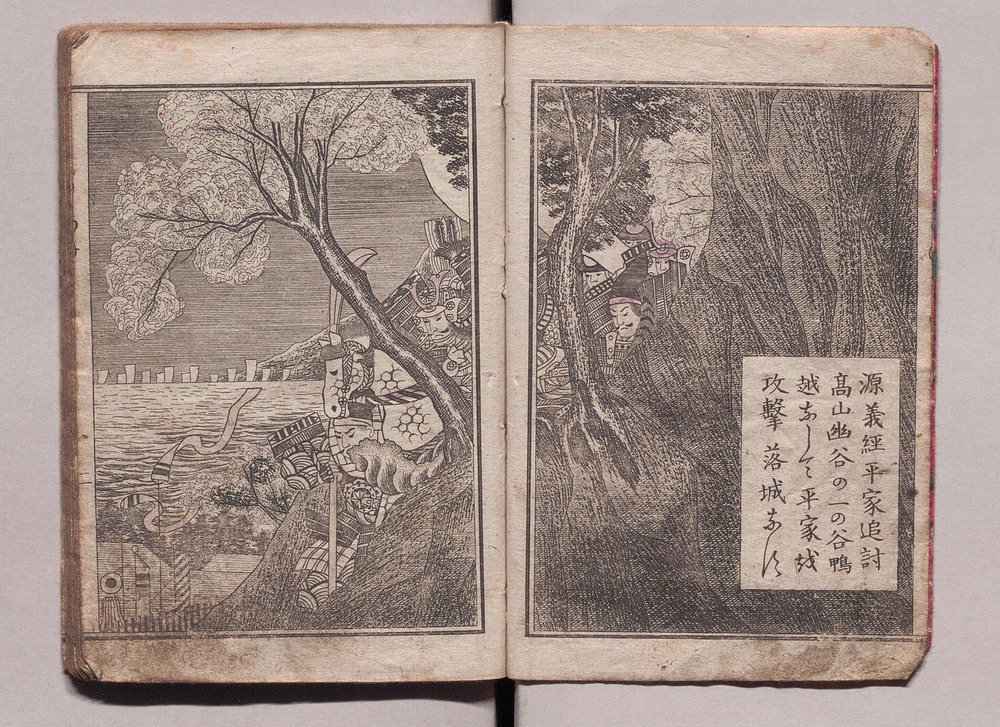 源義經平家追討
髙山幽谷の一の谷鴨
越なしして平家越
攻擊落城なす